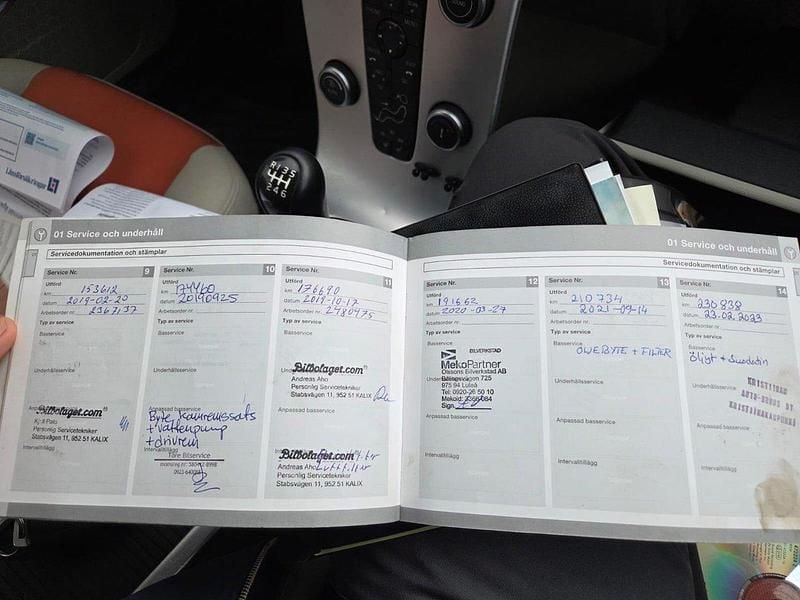 01 Service och underhåll
Servicedokumentation och stämplar
Service Nr. 9
Utförd
km 153612
datum 2019-02-20
Arbetsorder nr. 2367137
Typ av service
Basservice
Underhållsservice
Bilbolaget.com
Personlig Servicetekniker
Stabsvägen 11, 952 51 KALIX
Intervalltillägg
Service Nr. 10
Utförd
km 174460
datum 20190925
Arbetsorder nr.
Typ av service
Basservice
Underhållsservice
Anpassad basservice
Byte kamremssats
+ vattenpump
+ drivrem
Töre Bilservice
Service Nr. 11
Utförd
km 176690
datum 2019-10-17
Arbetsorder nr. 2480475
Typ av service
Basservice
Bilbolaget.com
Andreas Aho
Personlig Servicetekniker
Stabsvägen 11, 952 51 KALIX
Anpassad basservice
Bilbolaget.com
Andreas Aho
Personlig Servicetekniker
Stabsvägen 11, 952 51 KALIX
01 Service och underhåll
Servicedokumentation och stämplar
Service Nr. 12
Utförd
km 191662
datum 2020-03-27
Arbetsorder nr.
Typ av service
Basservice
BILVERKSTAD
MekoPartner
Olssons Bilverkstad AB
Betongvägen 725
975 94 Luleå
Tel: 0920-26 50 10
Sign.
Anpassad basservice
Intervalltillägg
Service Nr. 13
Utförd
km 210734
datum 2021-09-14
Arbetsorder nr.
Typ av service
Basservice
OLJEBYTE + FILTER
Underhållsservice
Anpassad basservice
Intervalltillägg
Service Nr. 14
Utförd
km 230838
datum 23.02.2023
Arbetsorder nr.
Typ av service
Basservice
Underhållsservice
Anpassad basservice
Intervalltillägg
Länsförsäkringar
R 1 3 5
2 4 6